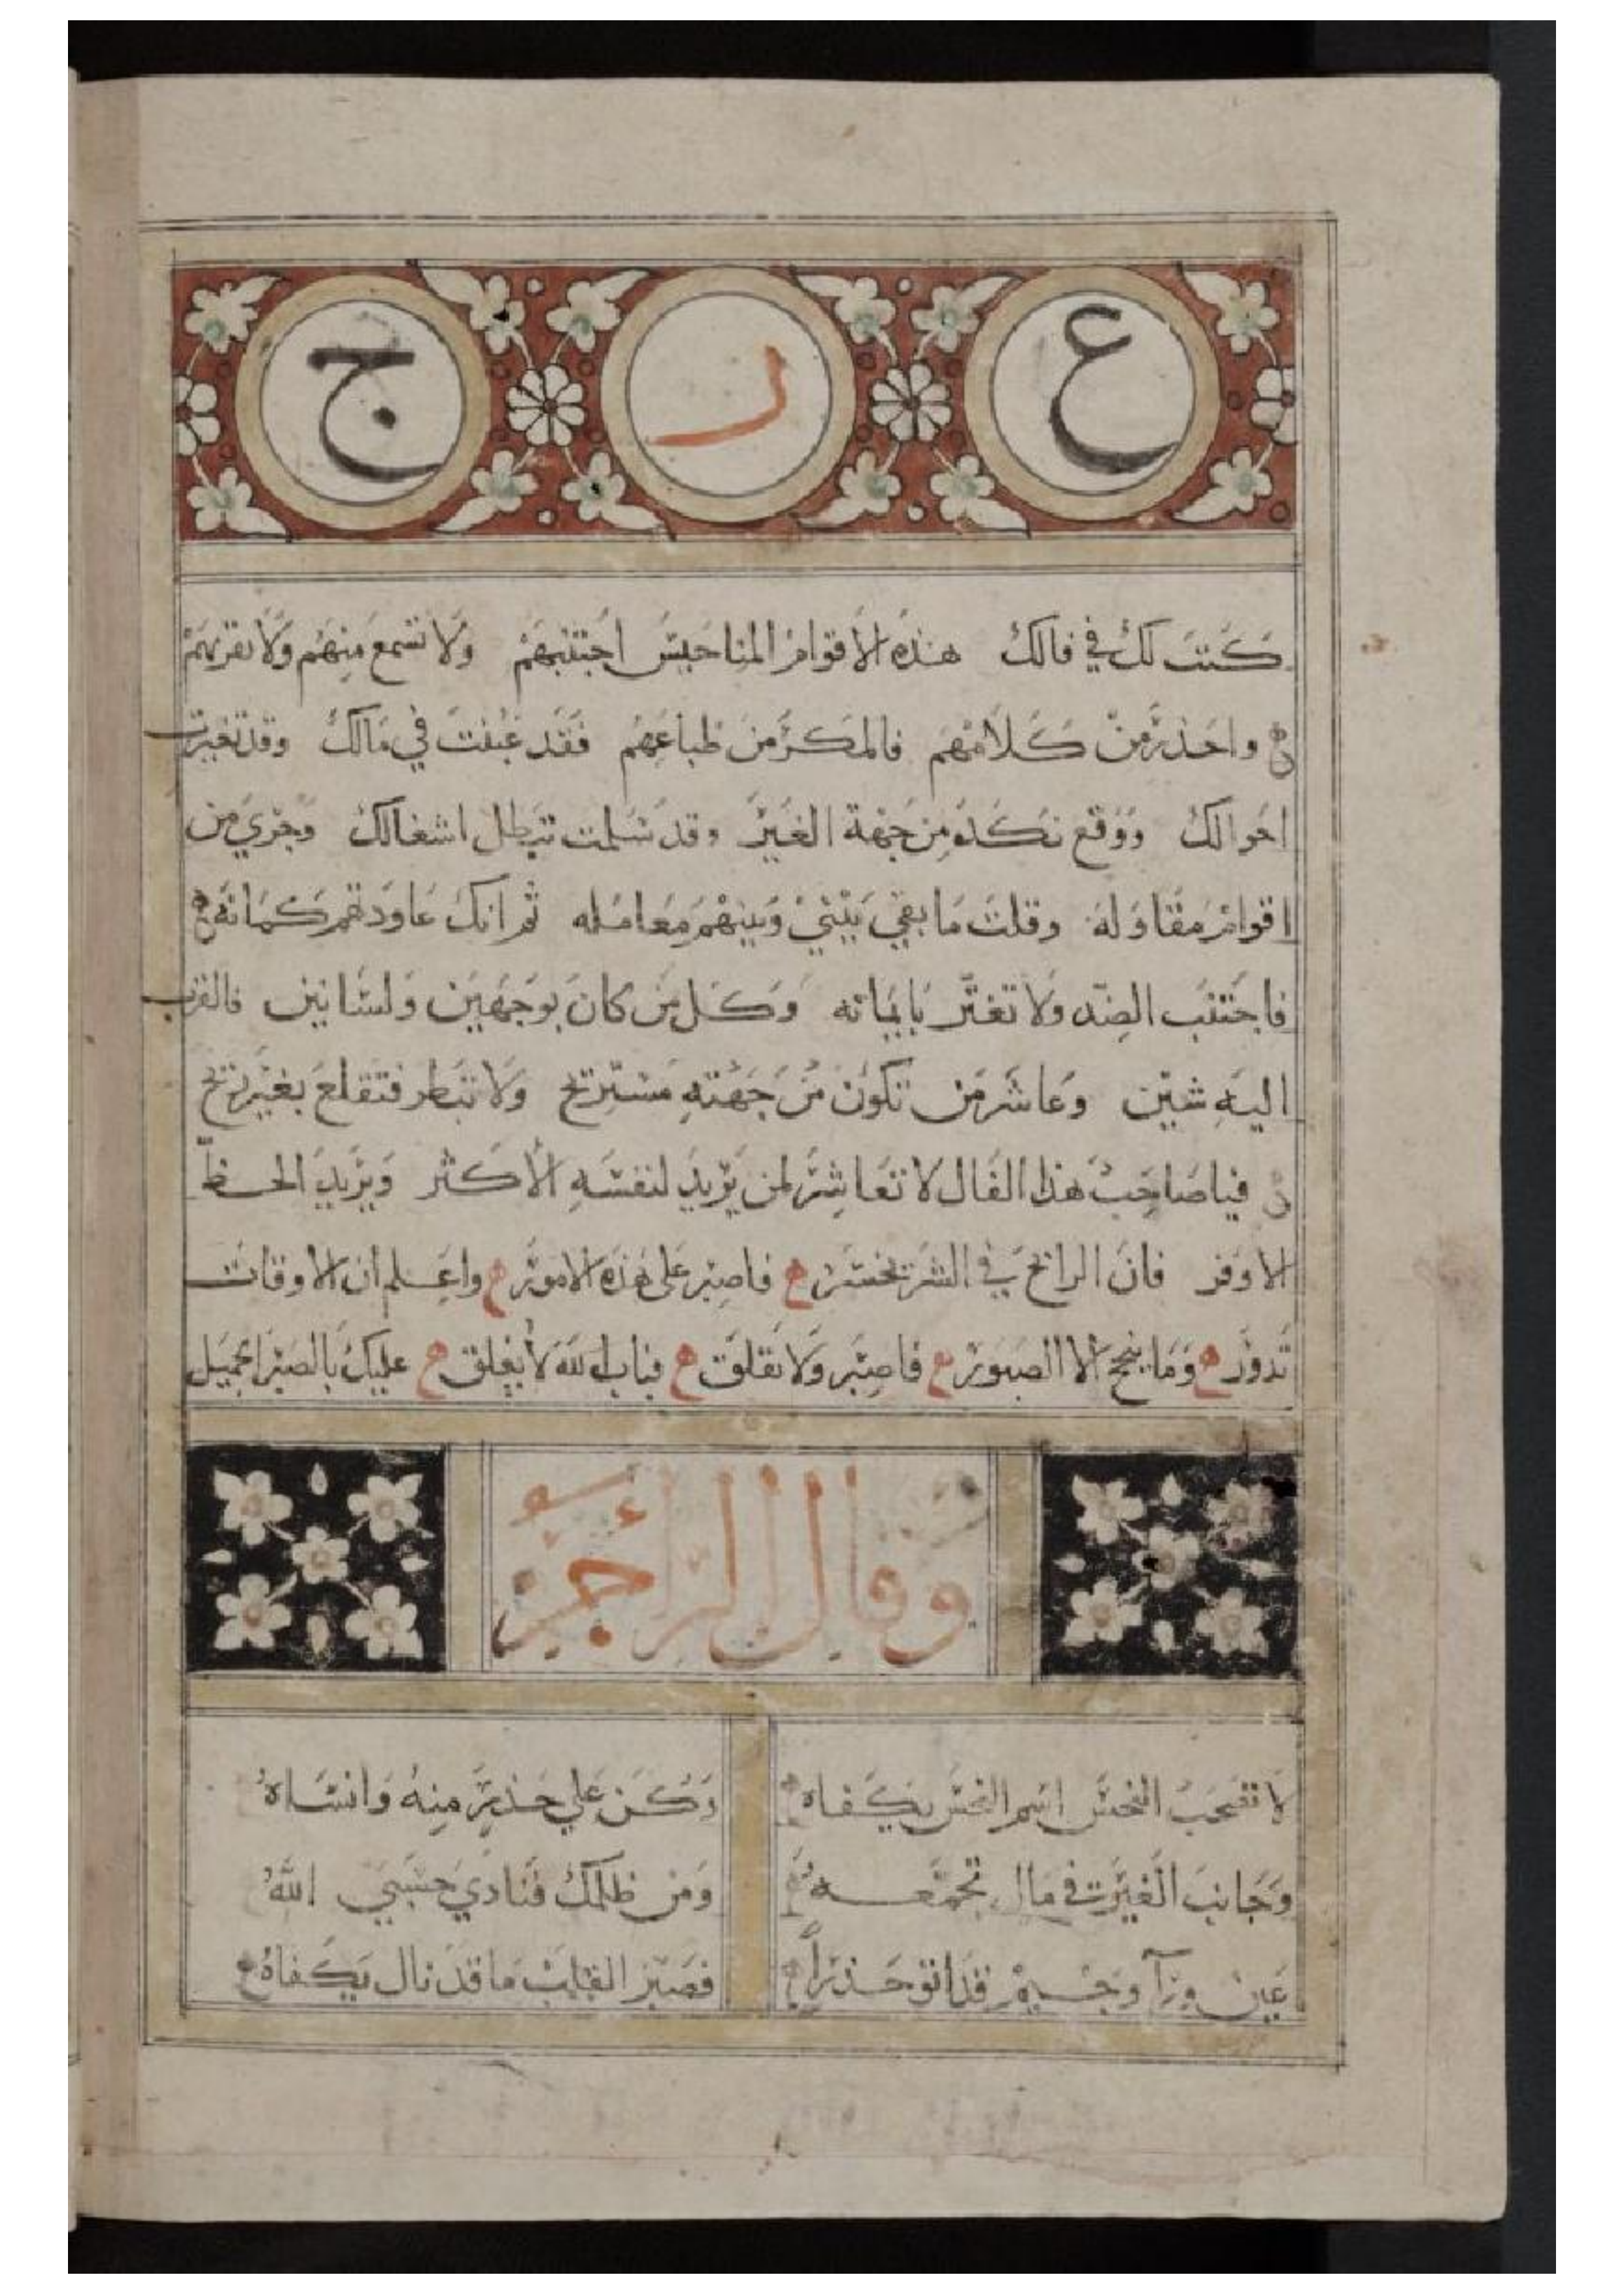 ع ر ج
كتب لك في فالك هذه الاقوام المناحيس اجتنبهم ولا تسمع منهم ولا تقربهم
واحذر من كلامهم فالمكر من طباعهم فقد غبنت في مالك وقد تغيرت
احوالك ووقع نكد من جهة الغير وقد تبطل اشغالك وجري من
اقوام مقاوله وقلت ما بقي بيني وبينهم معامله ثم انك عاودتهم
فاجتنب الضد ولا تغتر بايمانه وكل من كان بوجهين ولسانين فالقرب
اليه شين وعاشر من تكون من جهته مستريح ولا فتقلع بغير ريح
فيا صاحب هذا الفال لا تعاشر لمن يريد لنفسه الاكثر ويريد الحظ
الاوفر فان الرابح في الشر يخسر فاصبر على هذه الامور واعلم ان الاوقات
تدور وما ينجح الا الصبور فاصبر ولا تقلق فباب الله لا يغلق عليك بالصبر الجميل
وقال الراجز
لا تصحب النحس اسم النحس يكفاه وكن علي حذر منه وانساه
وجانب الغير في مال تجمعه ومن ظلمك فنادي حسبي الله
عين ورآ وجيم حذرا فصبر القلب ما قد نال يكفاه